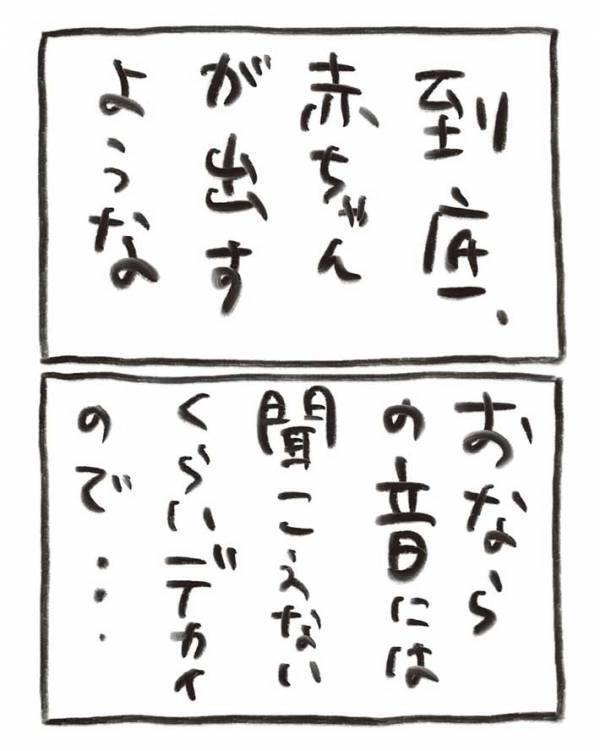 到底、
赤ちゃん
が出す
ような
おなら
の音には
聞こえない
くらいデカイ
ので...